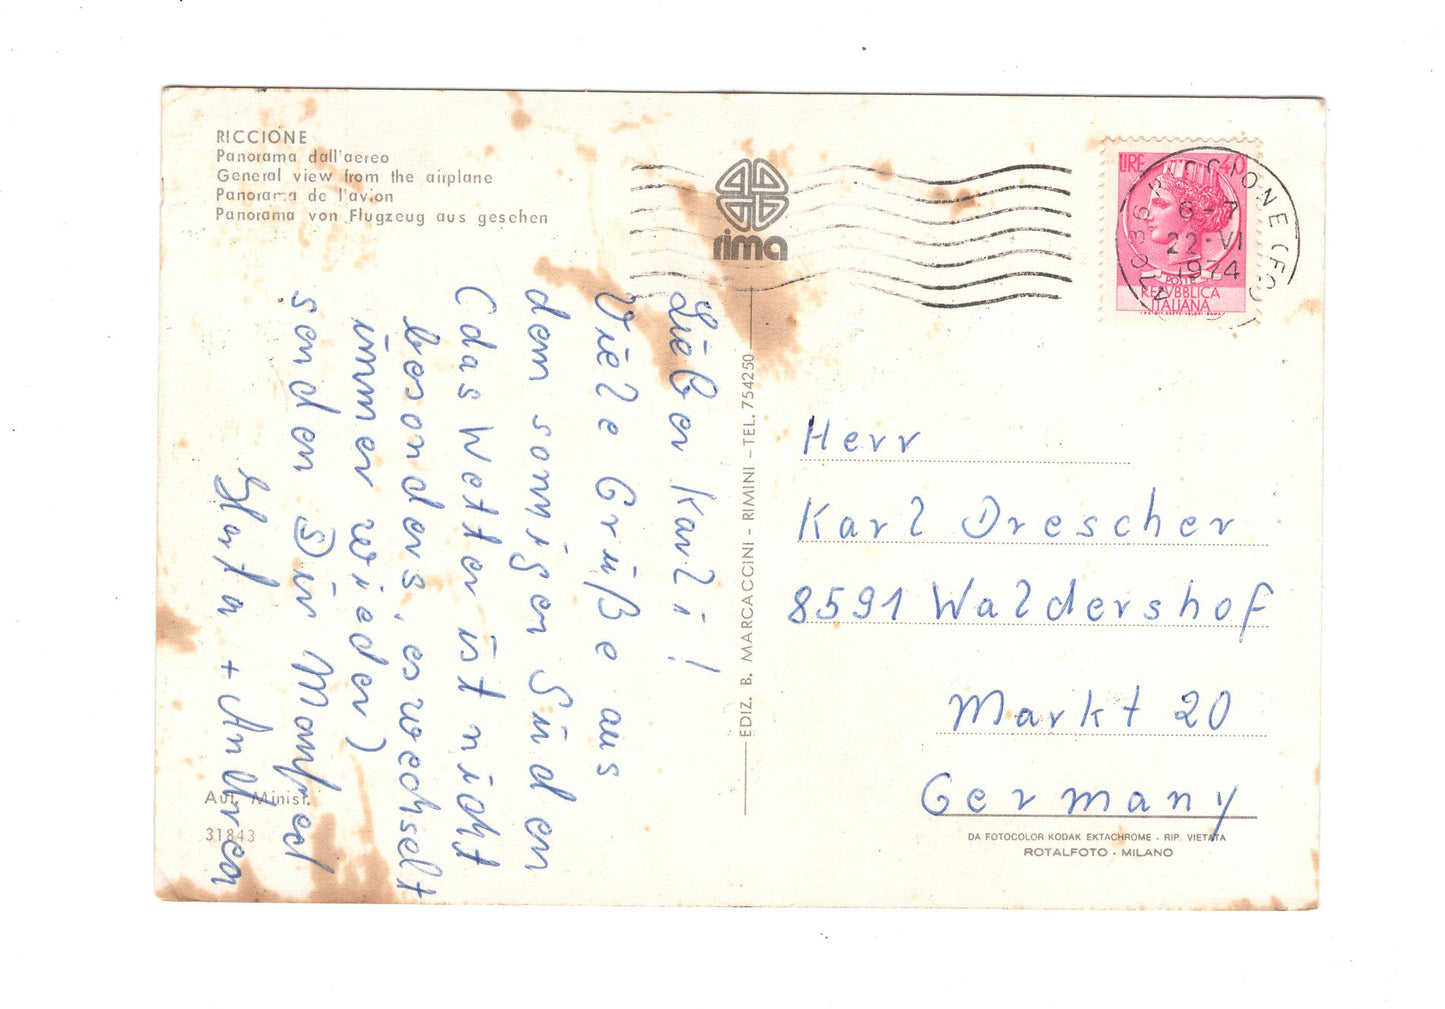 RICCIONE
Panorama dall'aereo
General view from the airplane
Panorama de l'avion
Panorama von Flugzeug aus gesehen
rima
LIRE 40
47036 RICCIONE (FO)
6-7
22·VI
1974
POSTE
REPVBBLICA
ITALIANA
Lieber Karli!
Viele Grüße aus
dem sonnigen Süden
(das Wetter ist nicht
besonders, es wechselt
immer wieder)
senden Dir Manfred
+ Andrea
EDIZ. B. MARCACCINI - RIMINI - TEL. 754250
Herr
Karl Drescher
8591 Waldershof
Markt 20
Germany
Aut. Minist.
31843
DA FOTOCOLOR KODAK EKTACHROME - RIP. VIETATA
ROTALFOTO - MILANO